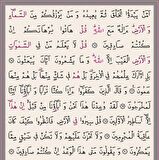 أَمَّن يَبْدَؤُا۟ ٱلْخَلْقَ ثُمَّ يُعِيدُهُۥ وَمَن يَرْزُقُكُم مِّنَ ٱلسَّمَآءِ
وَٱلْأَرْضِ أَءِلَٰهٌ مَّعَ ٱللَّهِ قُلْ هَاتُوا۟ بُرْهَٰنَكُمْ إِن
كُنتُمْ صَٰدِقِينَ ۝ قُل لَّا يَعْلَمُ مَن فِى ٱلسَّمَٰوَٰتِ
وَٱلْأَرْضِ ٱلْغَيْبَ إِلَّا ٱللَّهُ وَمَا يَشْعُرُونَ أَيَّانَ يُبْعَثُونَ
۝ بَلِ ٱدَّٰرَكَ عِلْمُهُمْ فِى ٱلْءَاخِرَةِ بَلْ هُمْ فِى شَكٍّ مِّنْهَا بَلْ هُم
مِّنْهَا عَمُونَ ۝ وَقَالَ ٱلَّذِينَ كَفَرُوٓا۟ أَءِذَا كُنَّا تُرَٰبًا وَءَابَآؤُنَآ أَئِنَّا
لَمُخْرَجُونَ ۝ لَقَدْ وُعِدْنَا هَٰذَا نَحْنُ وَءَابَآؤُنَا مِن قَبْلُ إِنْ هَٰذَآ إِلَّآ
أَسَٰطِيرُ ٱلْأَوَّلِينَ ۝ قُلْ سِيرُوا۟ فِى ٱلْأَرْضِ فَٱنظُرُوا۟ كَيْفَ كَانَ
عَٰقِبَةُ ٱلْمُجْرِمِينَ ۝ وَلَا تَحْزَنْ عَلَيْهِمْ وَلَا تَكُن فِى ضَيْقٍ مِّمَّا
يَمْكُرُونَ ۝ وَيَقُولُونَ مَتَىٰ هَٰذَا ٱلْوَعْدُ إِن كُنتُمْ